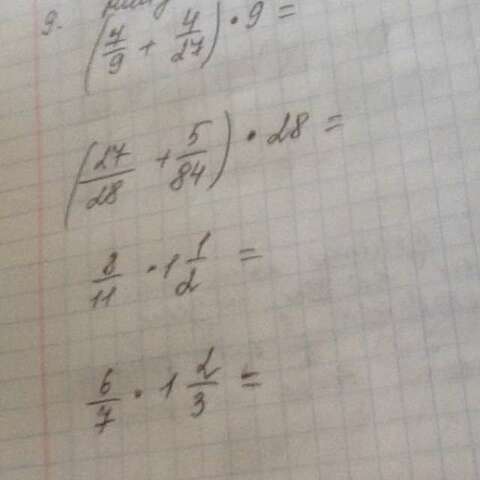 9.
(7/9 + 4/27) · 9 =
(27/28 + 5/84) · 28 =
8/11 · 1 1/2 =
6/7 · 1 2/3 =